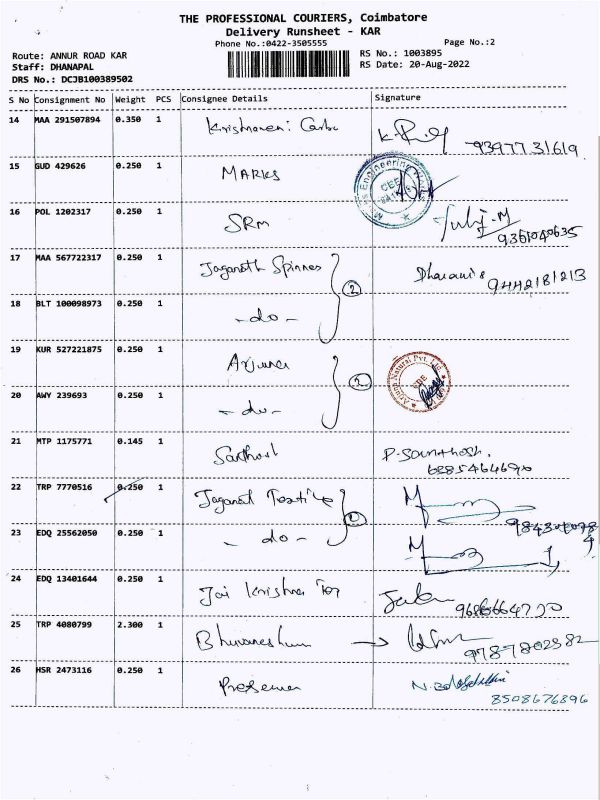 THE PROFESSIONAL COURIERS, Coimbatore
Delivery Runsheet - KAR
Phone No.:0422-3505555
Page No.:2
Route: ANNUR ROAD KAR
Staff: DHANAPAL
DRS No.: DCJB100389502
RS No.: 1003895
RS Date: 20-Aug-2022
S No Consignment No Weight PCS Consignee Details Signature
14 MAA 291507894 0.350 1
93977 31619
15 GUD 429626 0.250 1 MARKS
16 POL 1202317 0.250 1 SRM
9361040635
17 MAA 567722317 0.250 1 Jaganath Spinnes 2
9442181213
18 BLT 100098973 0.250 1 - do -
19 KUR 527221875 0.250 1 Arjuna 2
Arjuna Natural Pvt. Ltd.
20 AWY 239693 0.250 1 - do -
21 MTP 1175771 0.145 1 Santhosh P. Santhosh.
6885464690
22 TRP 7770516 0.250 1 Jaganath Textile
23 EDQ 25562050 0.250 1 - do -
24 EDQ 13401644 0.250 1 Jai Krishna
25 TRP 4080799 2.300 1
9787802382
26 HSR 2473116 0.250 1
8508676896